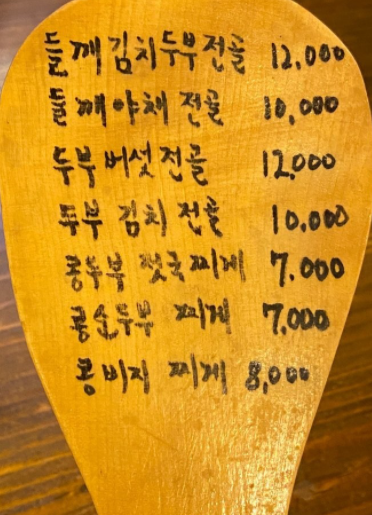 들깨김치두부전골 12,000
들깨야채전골 10,000
두부버섯전골 12,000
두부 김치 전골 10,000
콩두부 젓국찌게 7,000
콩순두부 찌게 7,000
콩비지 찌게 8,000